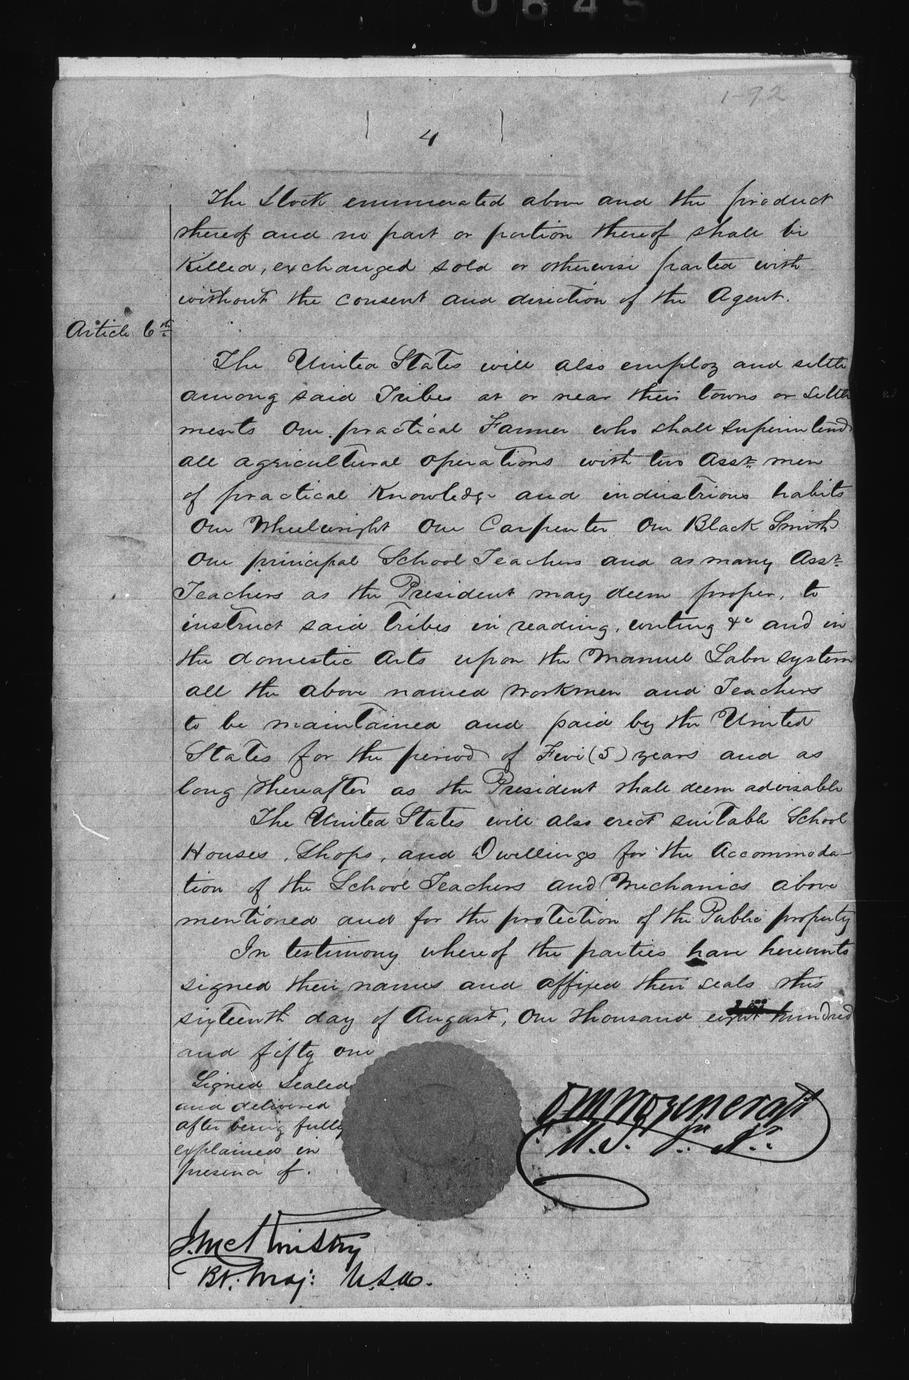 1-92
4
The Stock enumerated above and the product
thereof and no part or portion thereof shall be
Killed, exchanged sold or otherwise parted with
without the consent and direction of the Agent.
Article 6th
The United States will also employ and settle
among said Tribes at or near their towns or settle
ments One practical Farmer who shall superintend
all agricultural operations with two Asst men
of practical Knowledge and industrious habits
One Wheelwright One Carpenter One Black Smith
One principal School Teachers and as many Asst
Teachers as the President may deem proper, to
instruct said Tribes in reading, writing &c and in
the domestic Arts upon the Manuel Labor system
all the above named workmen and Teachers
to be maintained and paid by the United
States for the period of Five (5) years and as
long thereafter as the President shall deem advisable
The United States will also erect suitable School
Houses, Shops, and Dwellings for the Accommoda-
tion of the School Teachers and Mechanics above
mentioned and for the protection of the Public property
In testimony whereof the parties have hereunto
signed their names and affixed their seals this
sixteenth day of August, One thousand eight hundred
and fifty one
Signed Sealed
and delivered
after being fully
explained in
presence of.
U. S.
Bt. Maj: U.S.A.